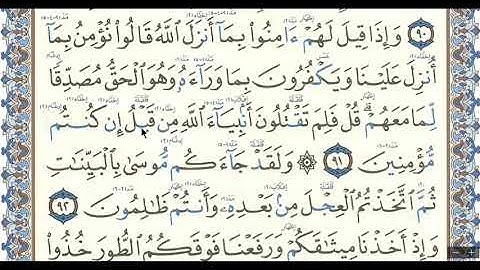 ٩٠ وَإِذَا قِيلَ لَهُمْ ءَامِنُوا۟ بِمَآ أَنزَلَ ٱللَّهُ قَالُوا۟ نُؤْمِنُ بِمَآ
أُنزِلَ عَلَيْنَا وَيَكْفُرُونَ بِمَا وَرَآءَهُۥ وَهُوَ ٱلْحَقُّ مُصَدِّقًا
لِّمَا مَعَهُمْ ۗ قُلْ فَلِمَ تَقْتُلُونَ أَنۢبِيَآءَ ٱللَّهِ مِن قَبْلُ إِن كُنتُم
مُّؤْمِنِينَ ٩١ ۞ وَلَقَدْ جَآءَكُم مُّوسَىٰ بِٱلْبَيِّنَٰتِ
ثُمَّ ٱتَّخَذْتُمُ ٱلْعِجْلَ مِنۢ بَعْدِهِۦ وَأَنتُمْ ظَٰلِمُونَ ٩٢
وَإِذْ أَخَذْنَا مِيثَٰقَكُمْ وَرَفَعْنَا فَوْقَكُمُ ٱلطُّورَ خُذُوا۟